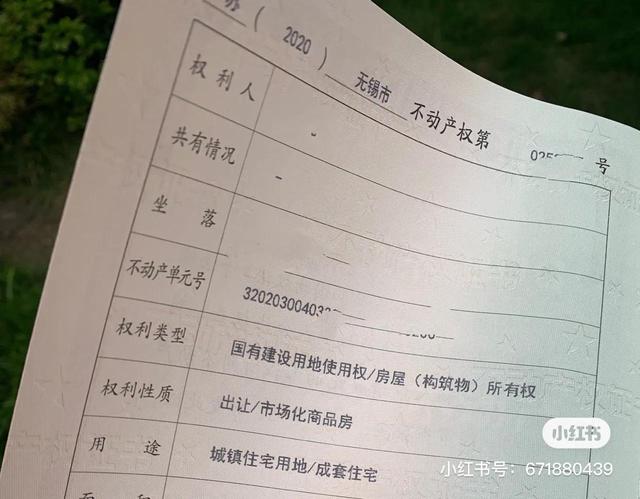 苏( 2020 ) 无锡市 不动产权第 025 号
权利人
共有情况
坐 落
不动产单元号 3202030040
权利类型 国有建设用地使用权/房屋（构筑物）所有权
权利性质 出让/市场化商品房
用 途 城镇住宅用地/成套住宅
小红书
小红书号：671880439